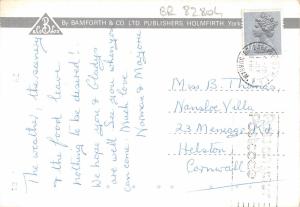 BR 82804
By BAMFORTH & CO LTD PUBLISHERS HOLMFIRTH Yorks
The weather, the scenery
& the food leave
nothing to be desired!
We hope you & Gladys
are well. See you when you
can come. Much love
Norman & Marjorie
Mrs B. Thomas,
Nansloe Villa
23 Meneage Rd,
Helston,
Cornwall